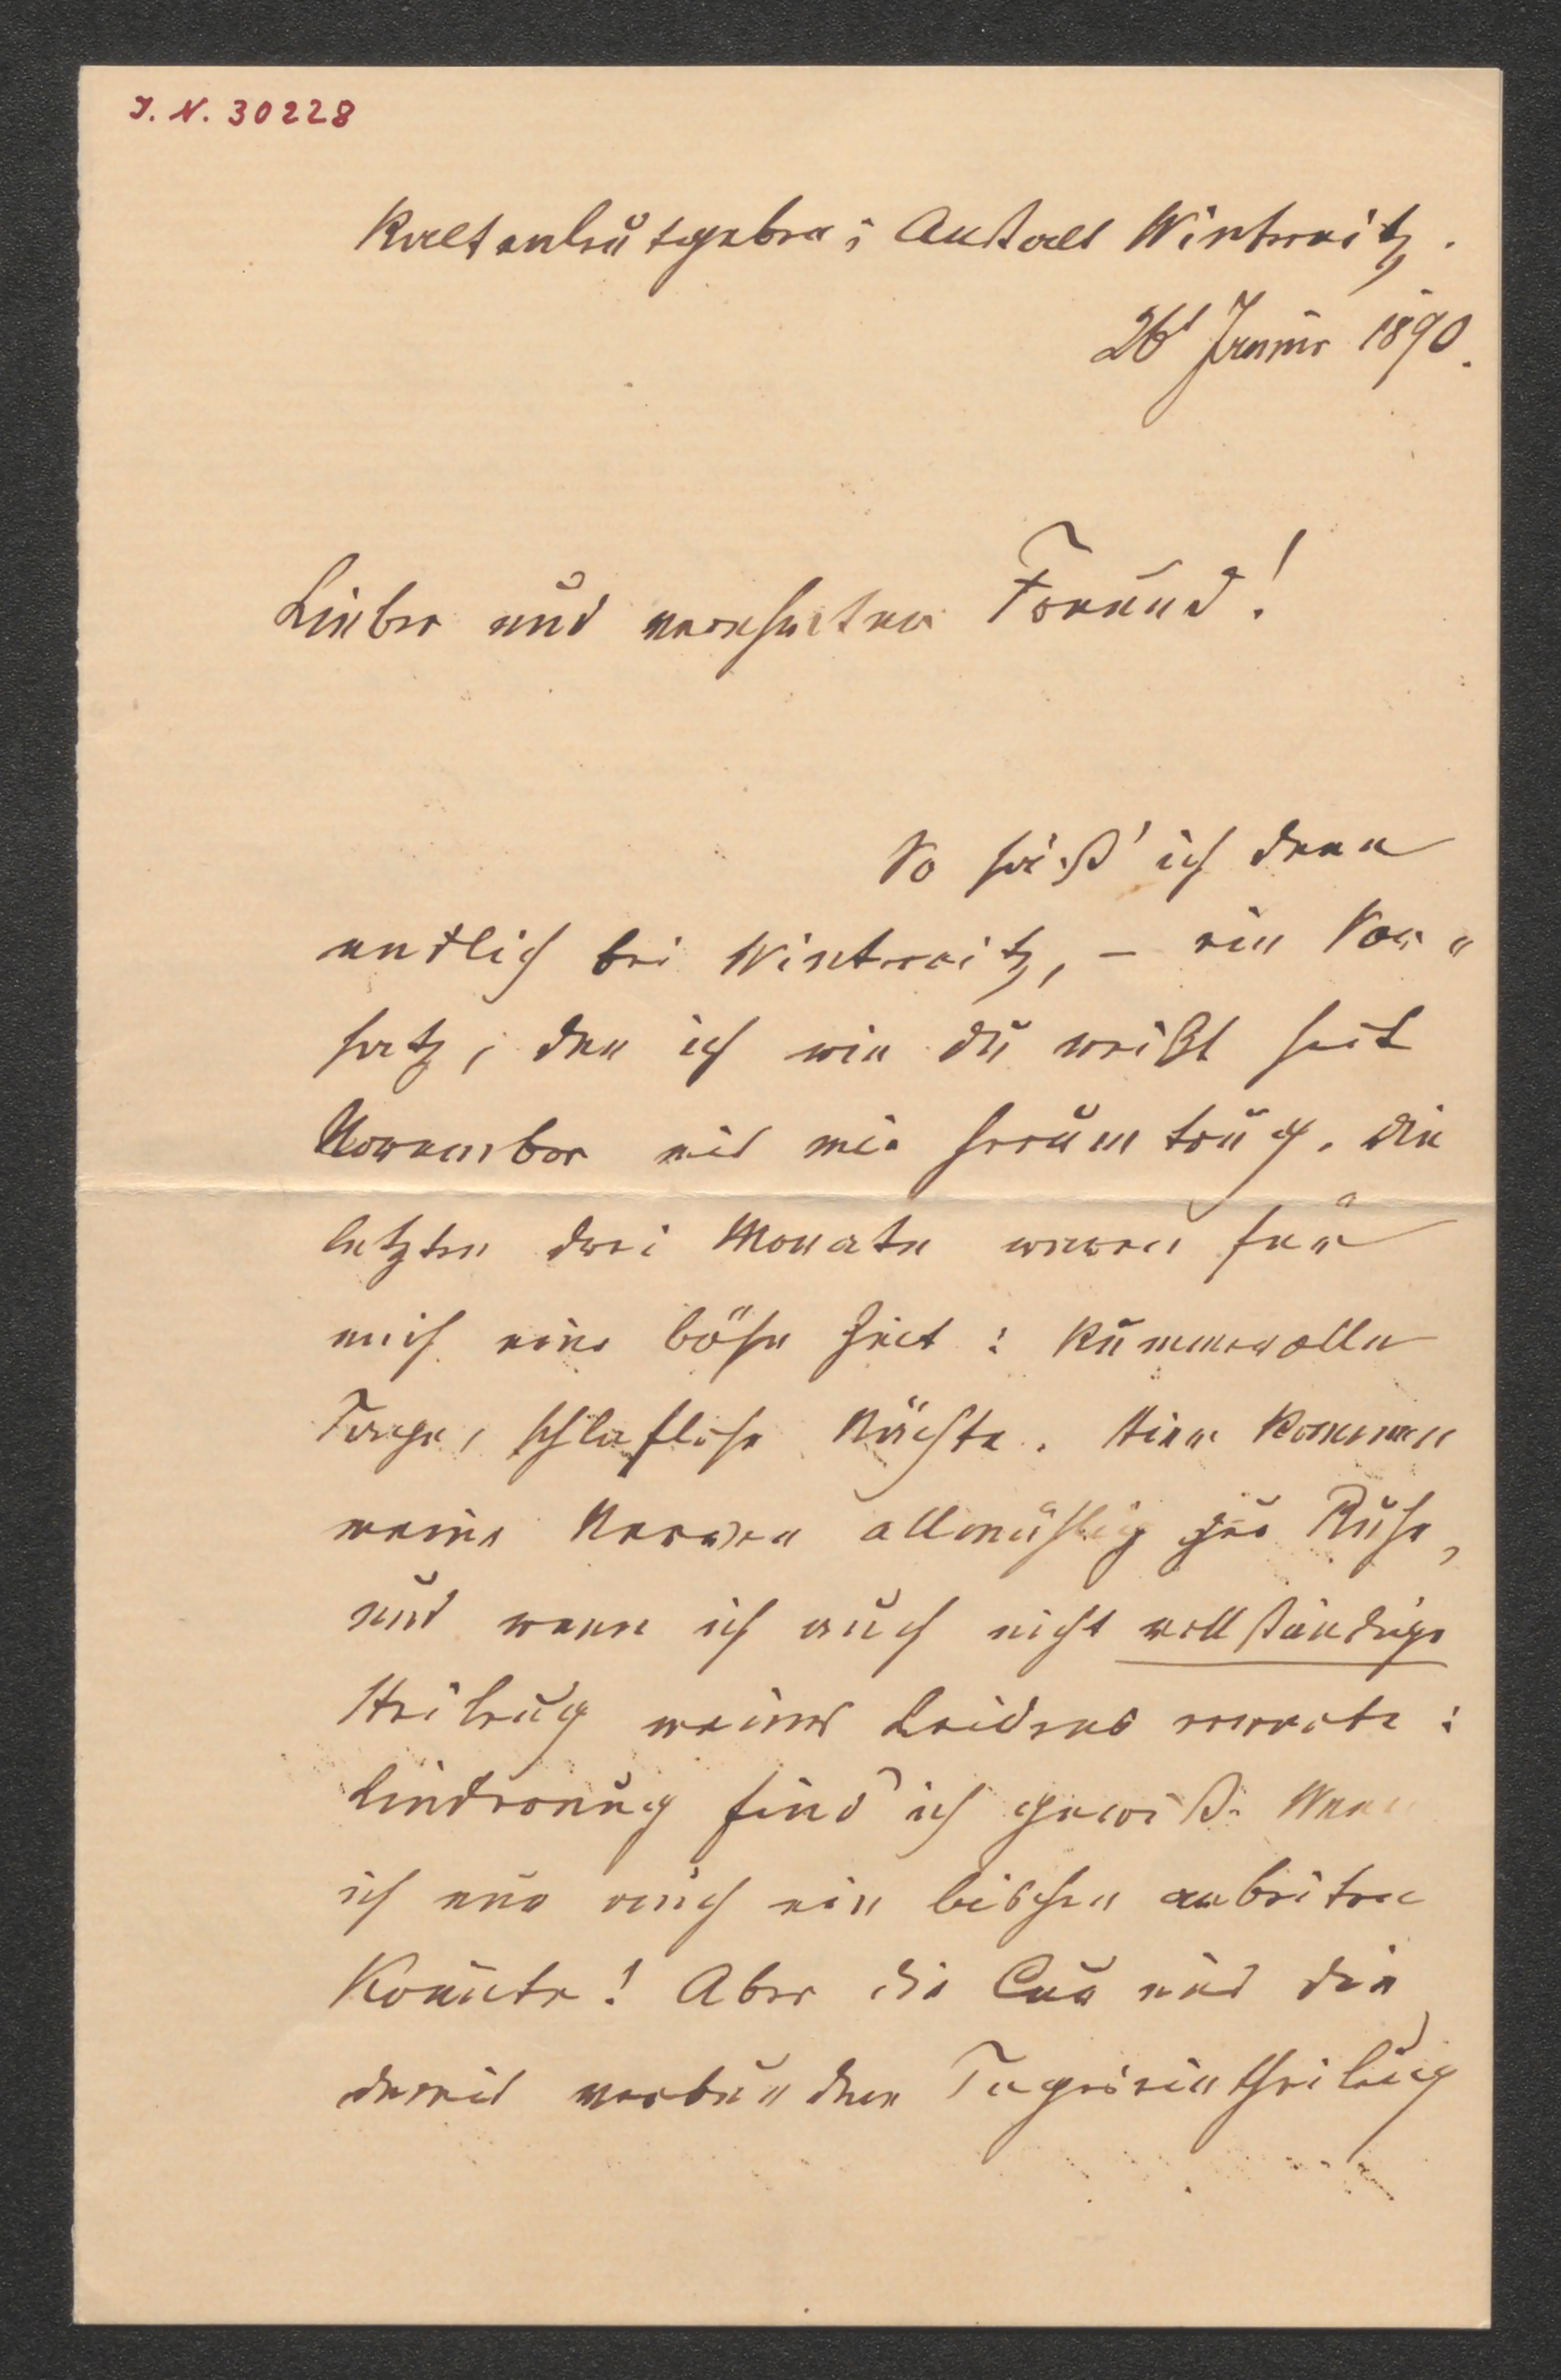 J. N. 30228
Kaltenleutgeben; Anstalt Winternitz.
26t Januar 1890.
Lieber und verehrter Freund!
So sitz' ich denn
endlich bei Winternitz, – ein Vor=
satz, den ich wie du weißt seit
November mit mir herum trug. Die
letzten drei Monate waren für
mich eine böse Zeit: Kummervolle
Tage, schlaflose Nächte. Hier kommen
meine Nerven allmählig zur Ruhe,
und wenn ich auch nicht vollständige
Heilung meines Leidens erwarte:
Linderung find' ich gewiß. Wenn
ich nur auch ein bischen arbeiten
könnte! Aber die Cur und die
damit verbundene Tageseintheilung